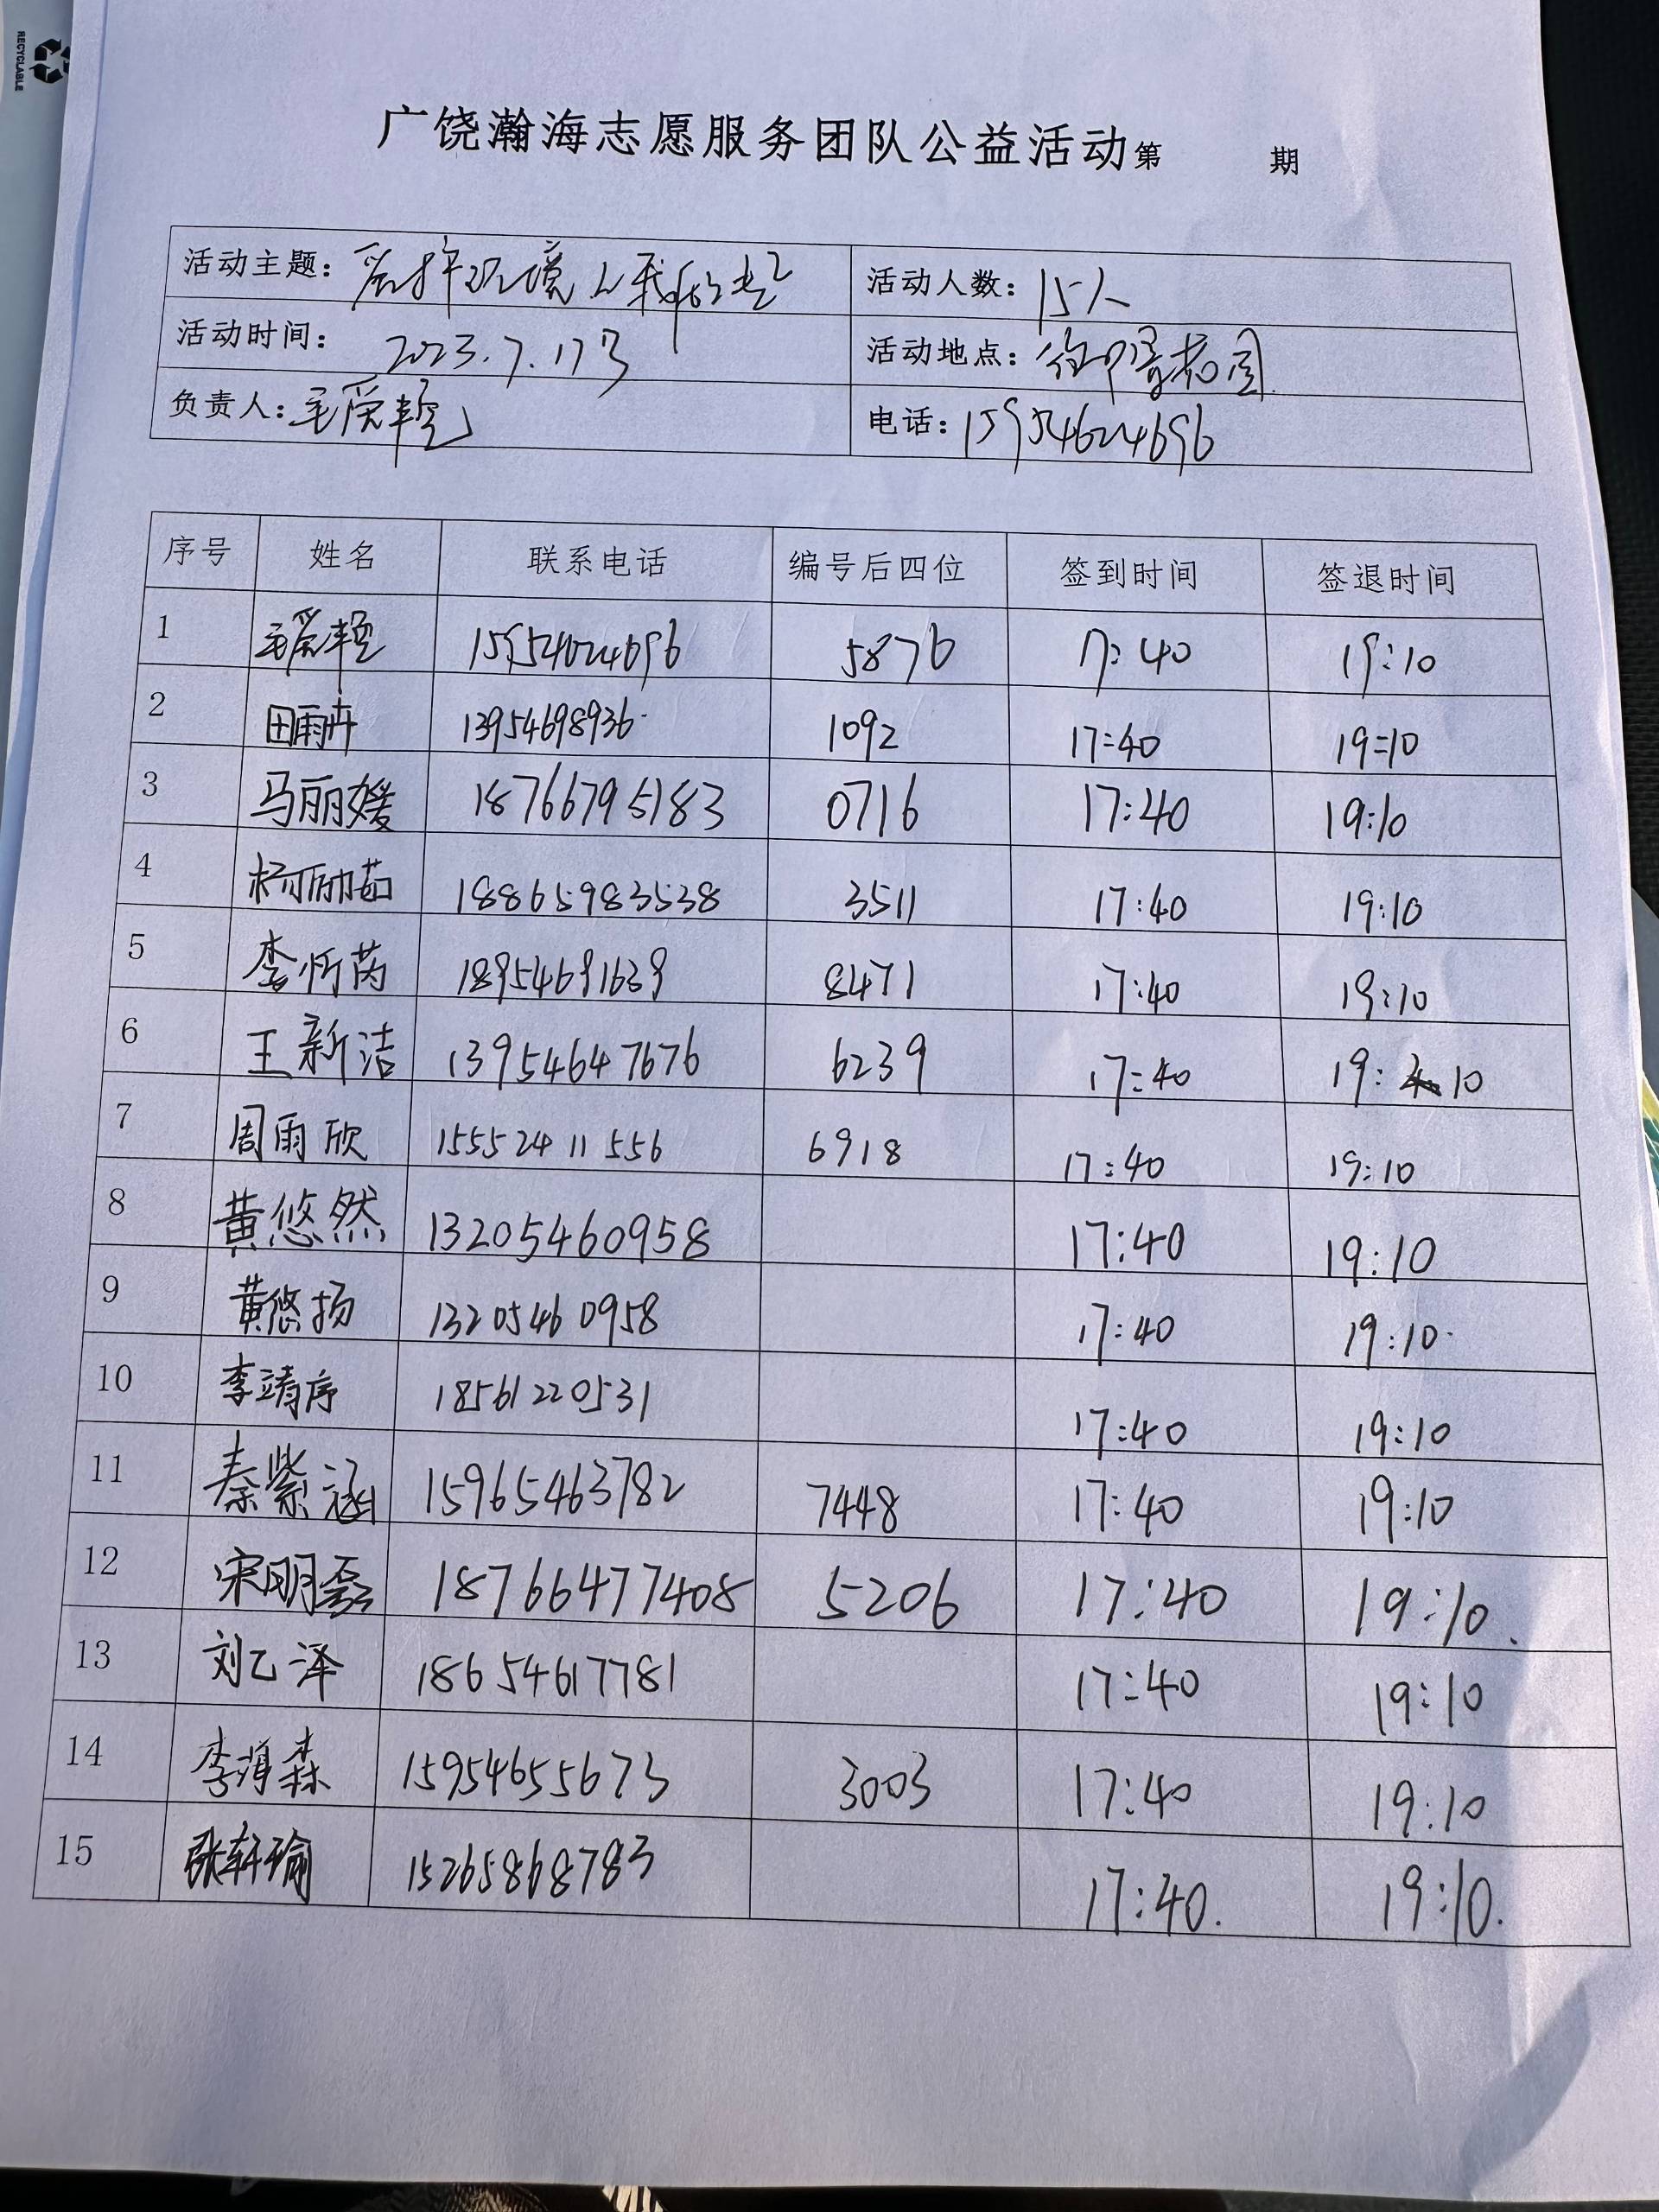 RECYCLABLE
广饶瀚海志愿服务团队公益活动第 期
活动主题：爱护环境从我做起 活动人数：15人
活动时间：2023.7.17号 活动地点：花园
负责人：毛爱 电话：15954624696
序号 姓名 联系电话 编号后四位 签到时间 签退时间
1 毛爱 15954624696 5876 17:40 19:10
2 田雨卉 13954698936 1092 17:40 19:10
3 马丽媛 18766795183 0716 17:40 19:10
4 杨丽茹 18865983538 3511 17:40 19:10
5 李忻芮 18954691639 8471 17:40 19:10
6 王新洁 13954647676 6239 17:40 19:10
7 周雨欣 15552411556 6918 17:40 19:10
8 黄悠然 13205460958 17:40 19:10
9 黄悠扬 13205460958 17:40 19:10
10 李靖序 18561220531 17:40 19:10
11 秦紫涵 15965463782 7448 17:40 19:10
12 宋明磊 18766477408 5206 17:40 19:10
13 刘乙泽 18654617781 17:40 19:10
14 李森 15954655673 3003 17:40 19:10
15 张轩瑜 15265868783 17:40 19:10